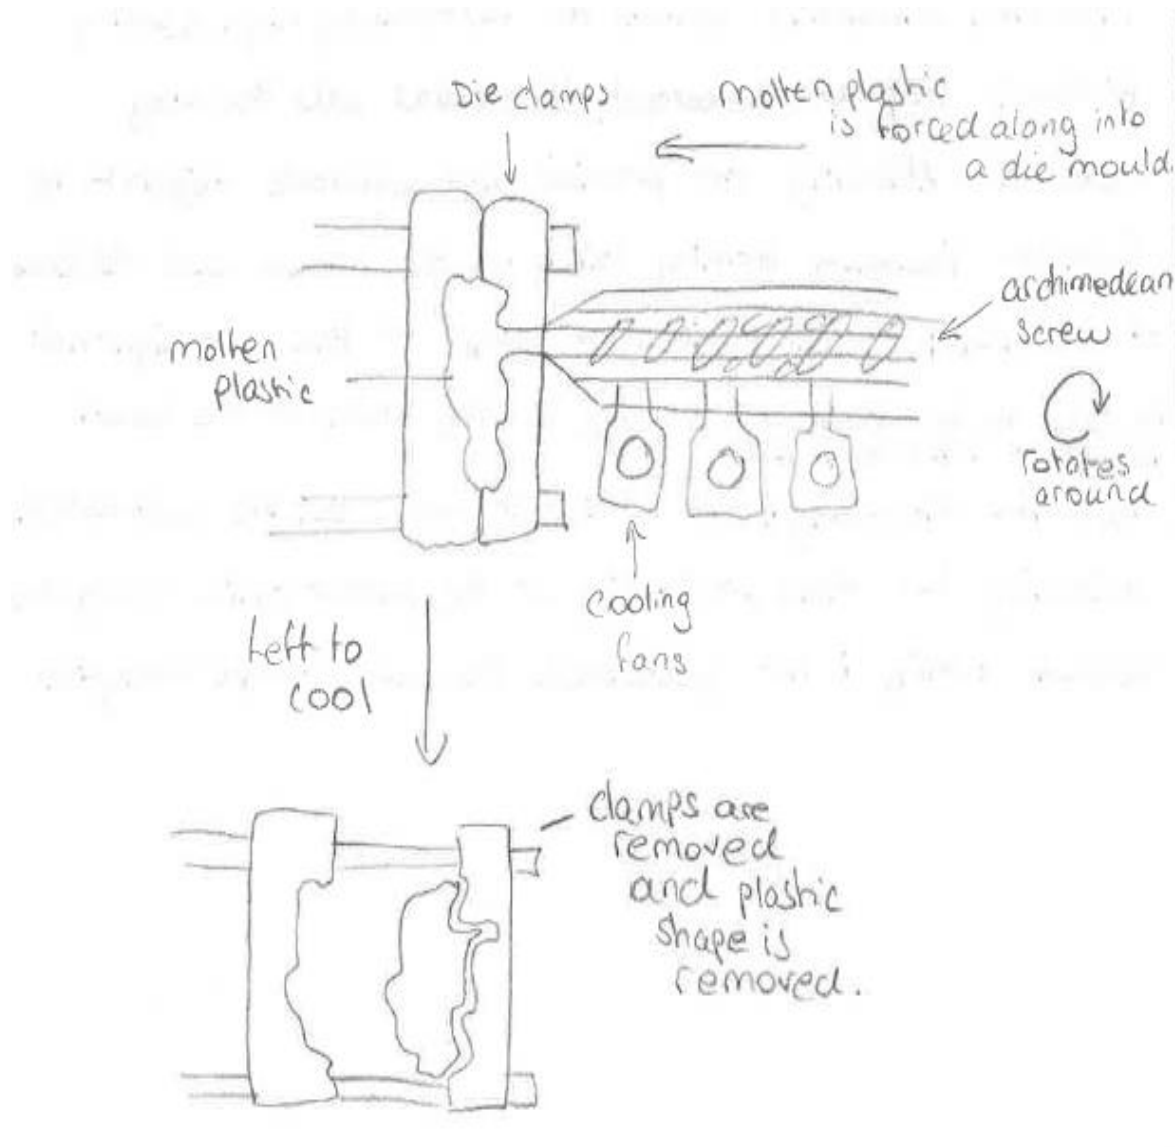 Die clamps
molten plastic
is forced along into
a die mould.
archimedean
screw
molten
plastic
rotates
around
cooling
fans
Left to
cool
clamps are
removed
and plastic
shape is
removed.